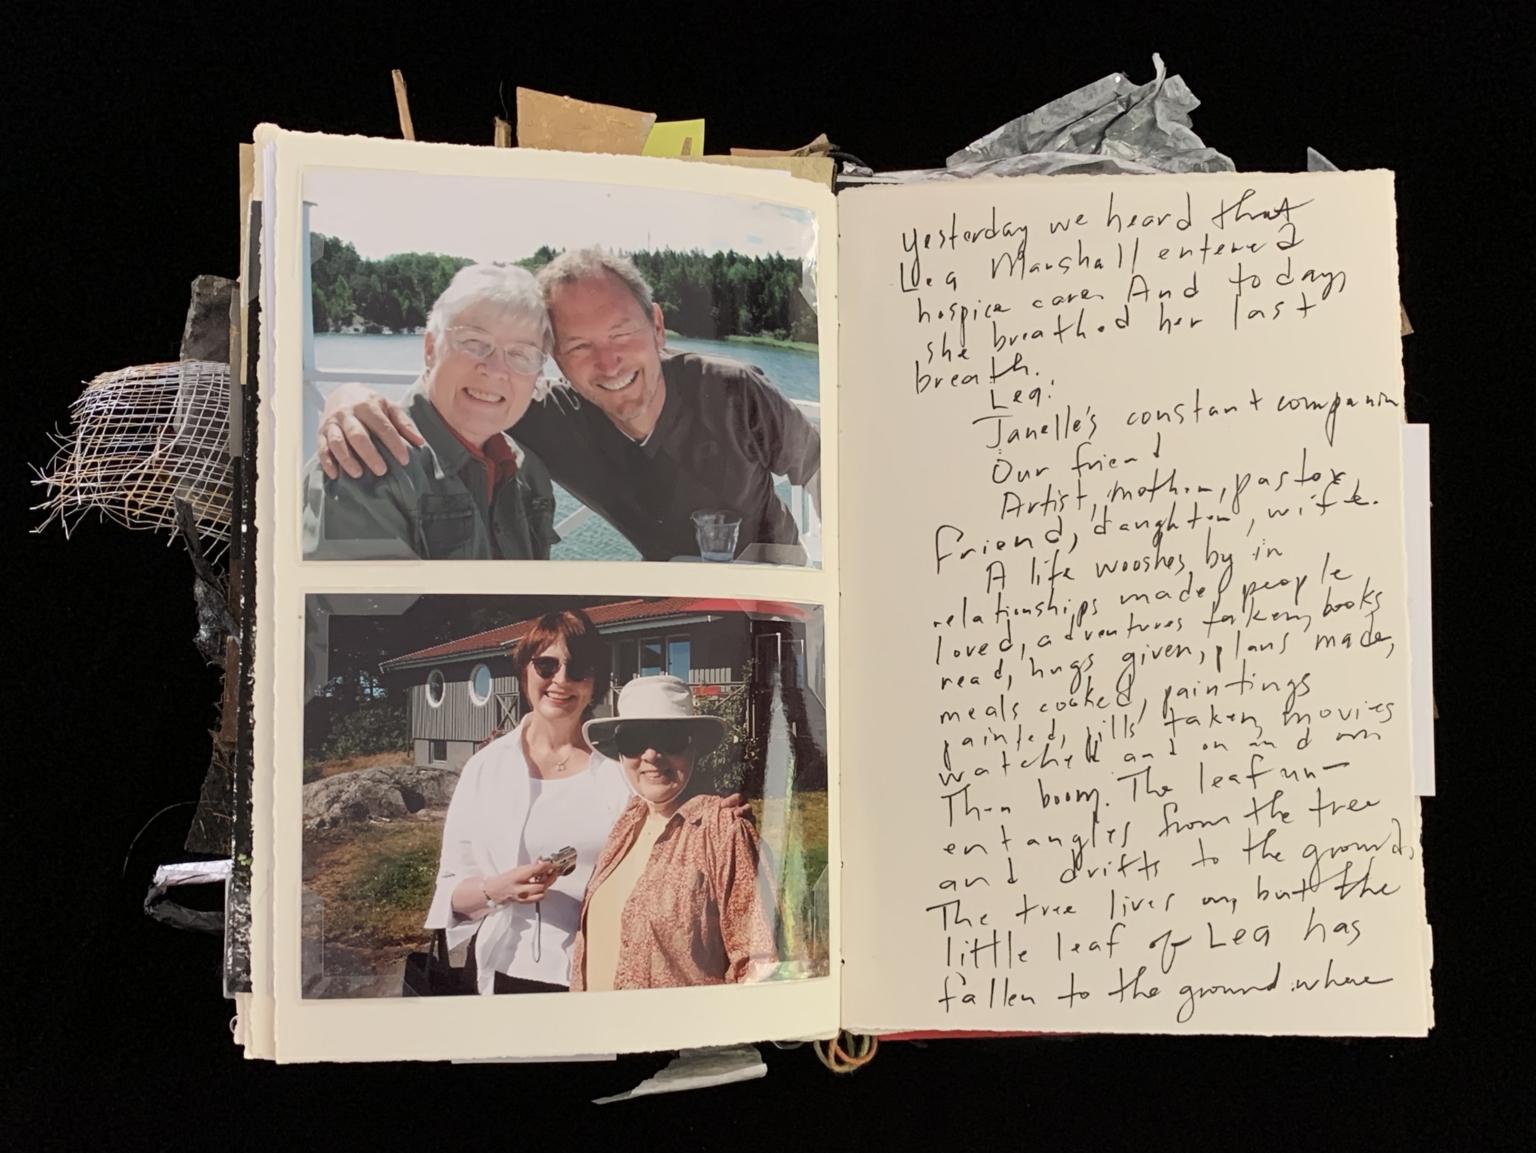 yesterday we heard that
Lea Marshall entered
hospice care. And today,
she breathed her last
breath.
Lea:
Janelle's constant companion
Our friend
Artist, mother, pastor
Friend, daughter, wife.
A life wooshes by in
relationships made, people
loved, adventures taken, books
read, hugs given, plans made,
meals cooked, paintings
painted, pills taken, movies
watched and on and on
Then boom. The leaf un-
entangles from the tree
and drifts to the ground,
The tree lives on, but the
little leaf of Lea has
fallen to the ground where